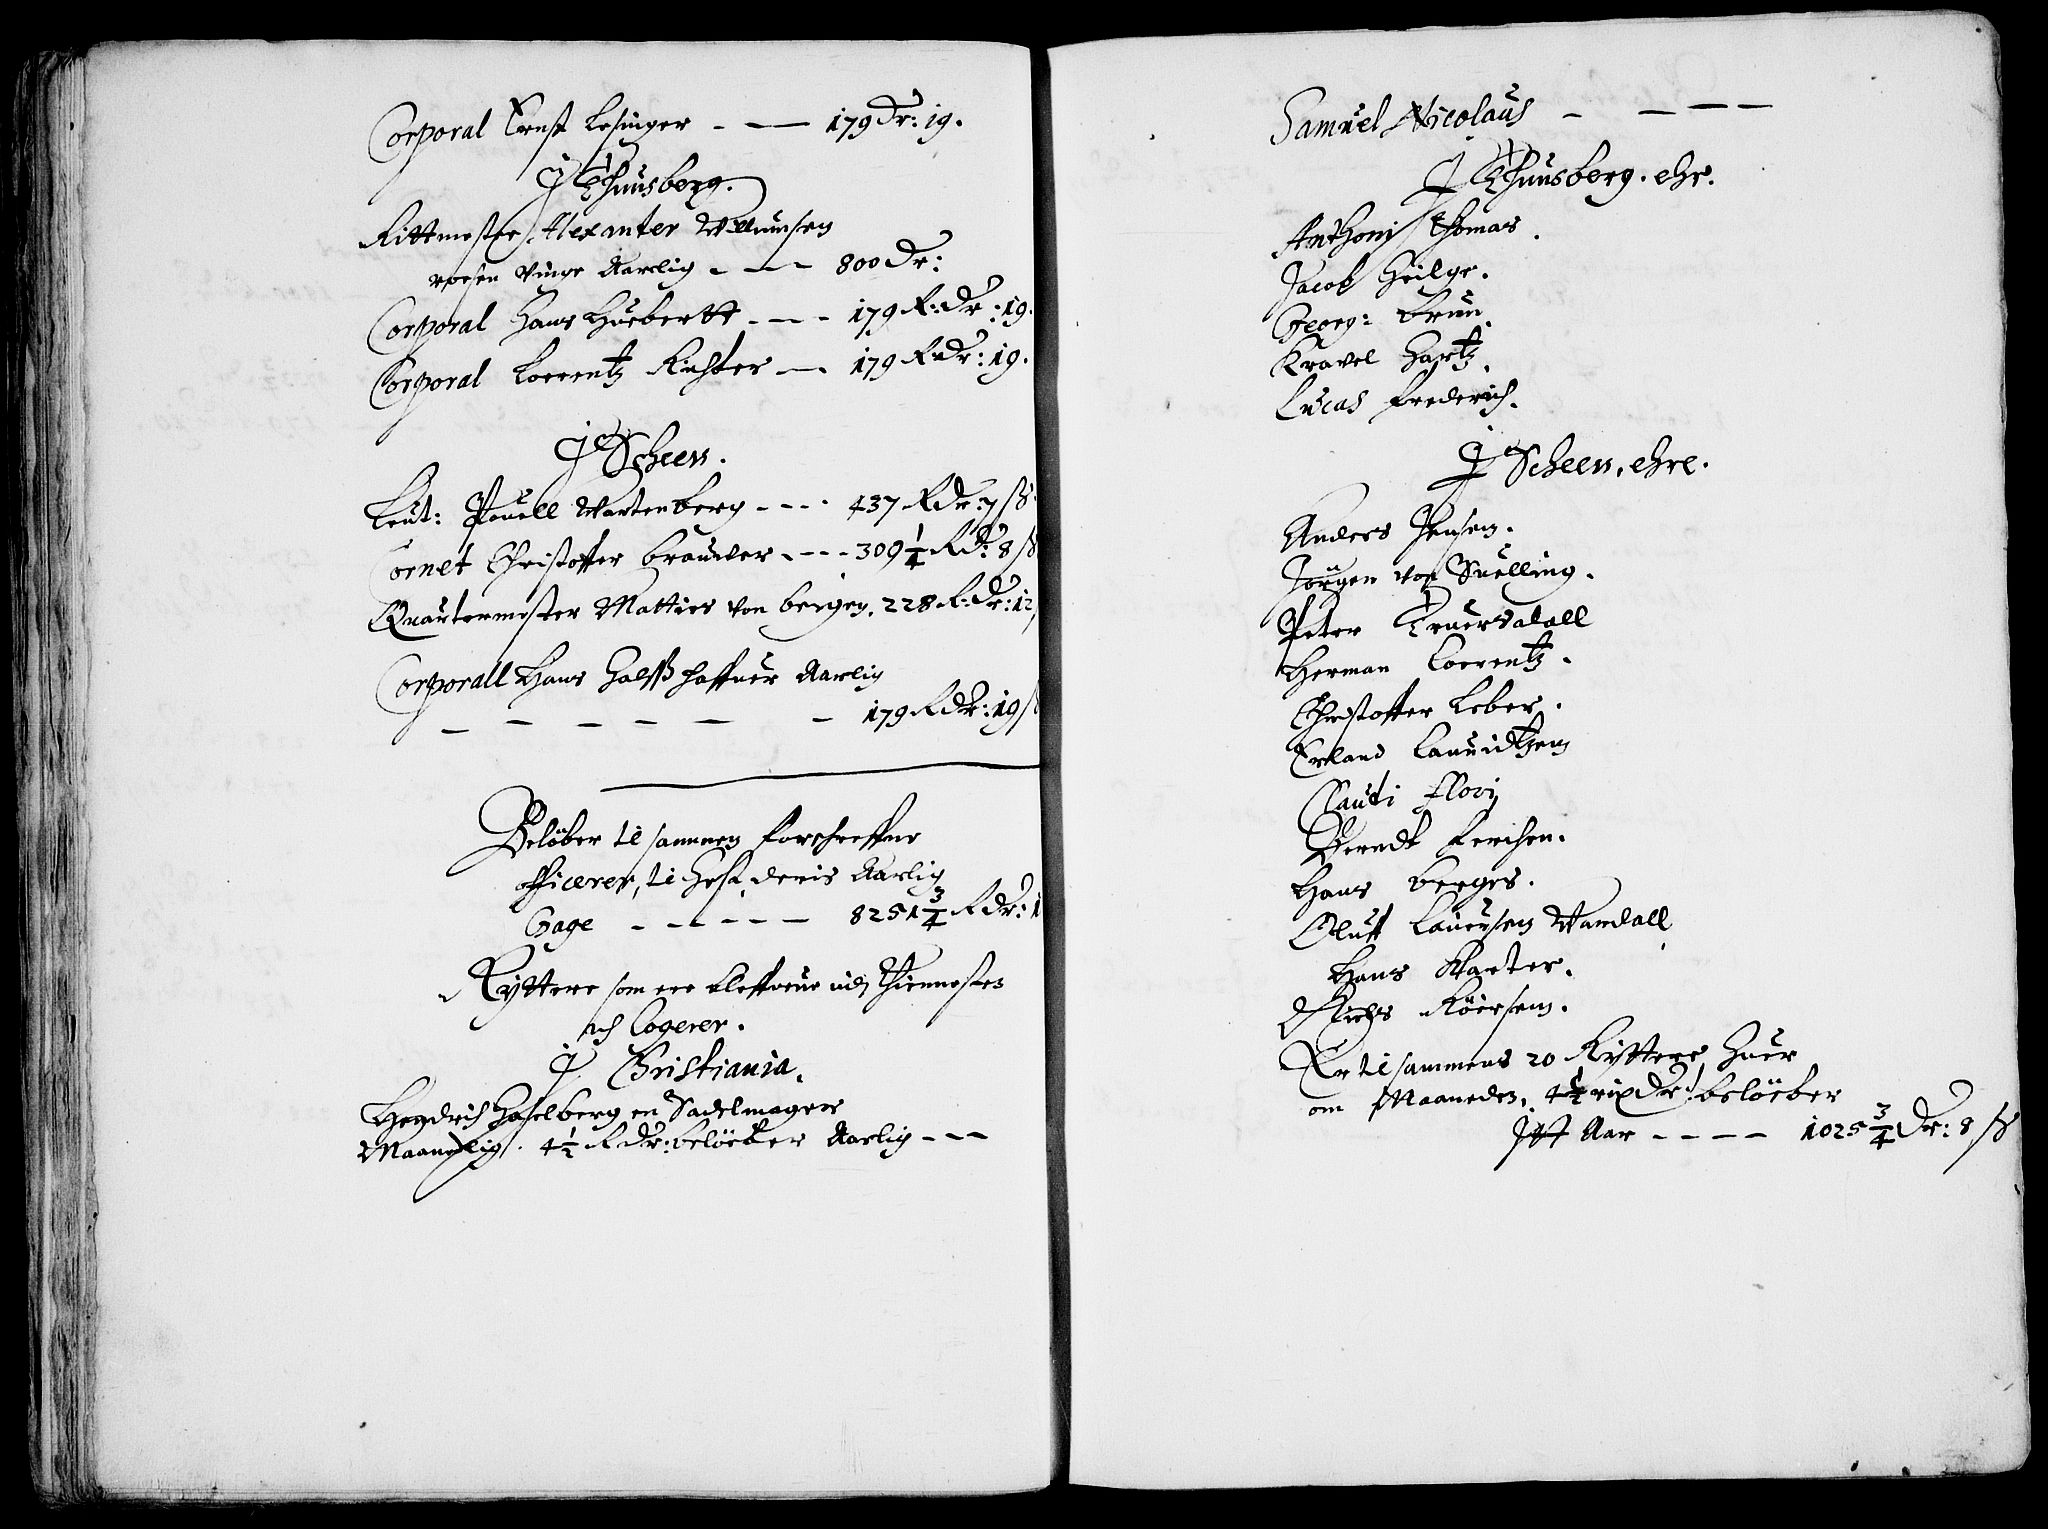 Corporal Ernst Lesinger - - - 179 Dr: 19.
J Thunsberg.
Rittmester Alexanter Willumsen
rosen vinge Aarlig - - - 800 Dr:
Corporal Hans Huebertt - - - 179 R: Dr: 19.
Corporal Loerentz Richter - - 179 R Dr: 19.
J Scheen.
Leut: Pouell Wartenberg - - - 437 R Dr: 7 ß
Cornet Christoffer brauwer - - - 309 1/4 R Dr: 8 ß
Quartermester Matties von bergen. 228 R: Dr: 12
Corporall Hans Halffschaffner Aarlig
- - - - - - 179 R dr: 19 ß
Belöber til sammen forschreffne
officerer, til Hest, deris Aarlig
Gage - - - - - 8251 3/4 R dr: 1
Ryttere som ere bleffuene udj Thiennesten
och Logerer.
J Christiania.
Hendrich Haselberg en Sadelmager
Maanedlig. 4 1/2 R Dr: belöeber Aarlig - - -
Samuel Nicolaus - - - -
J Thunsberg. ehr.
Anthonj Thomas.
Jacob Heilge.
Georg: brun.
Kravel Hartz.
Lucas frederich.
J Scheen, ehre.
Anders Jensen.
Jörgen von Snelling.
Peter Truersdalall
Herman Loerentz.
Christoffer Leber.
Erland Lauuidtzen
Clauti Flovj
Berndt Ferchen.
Hans berges.
Oluff Lauersen Wandall
Hans Karter.
Niels Röersen.
Er til sammens 20 Ryttere Huer
om Maaneden, 4 1/2 rixdr: belöeber
Jtt Aar - - - - 1025 3/4 Dr: 8 ß